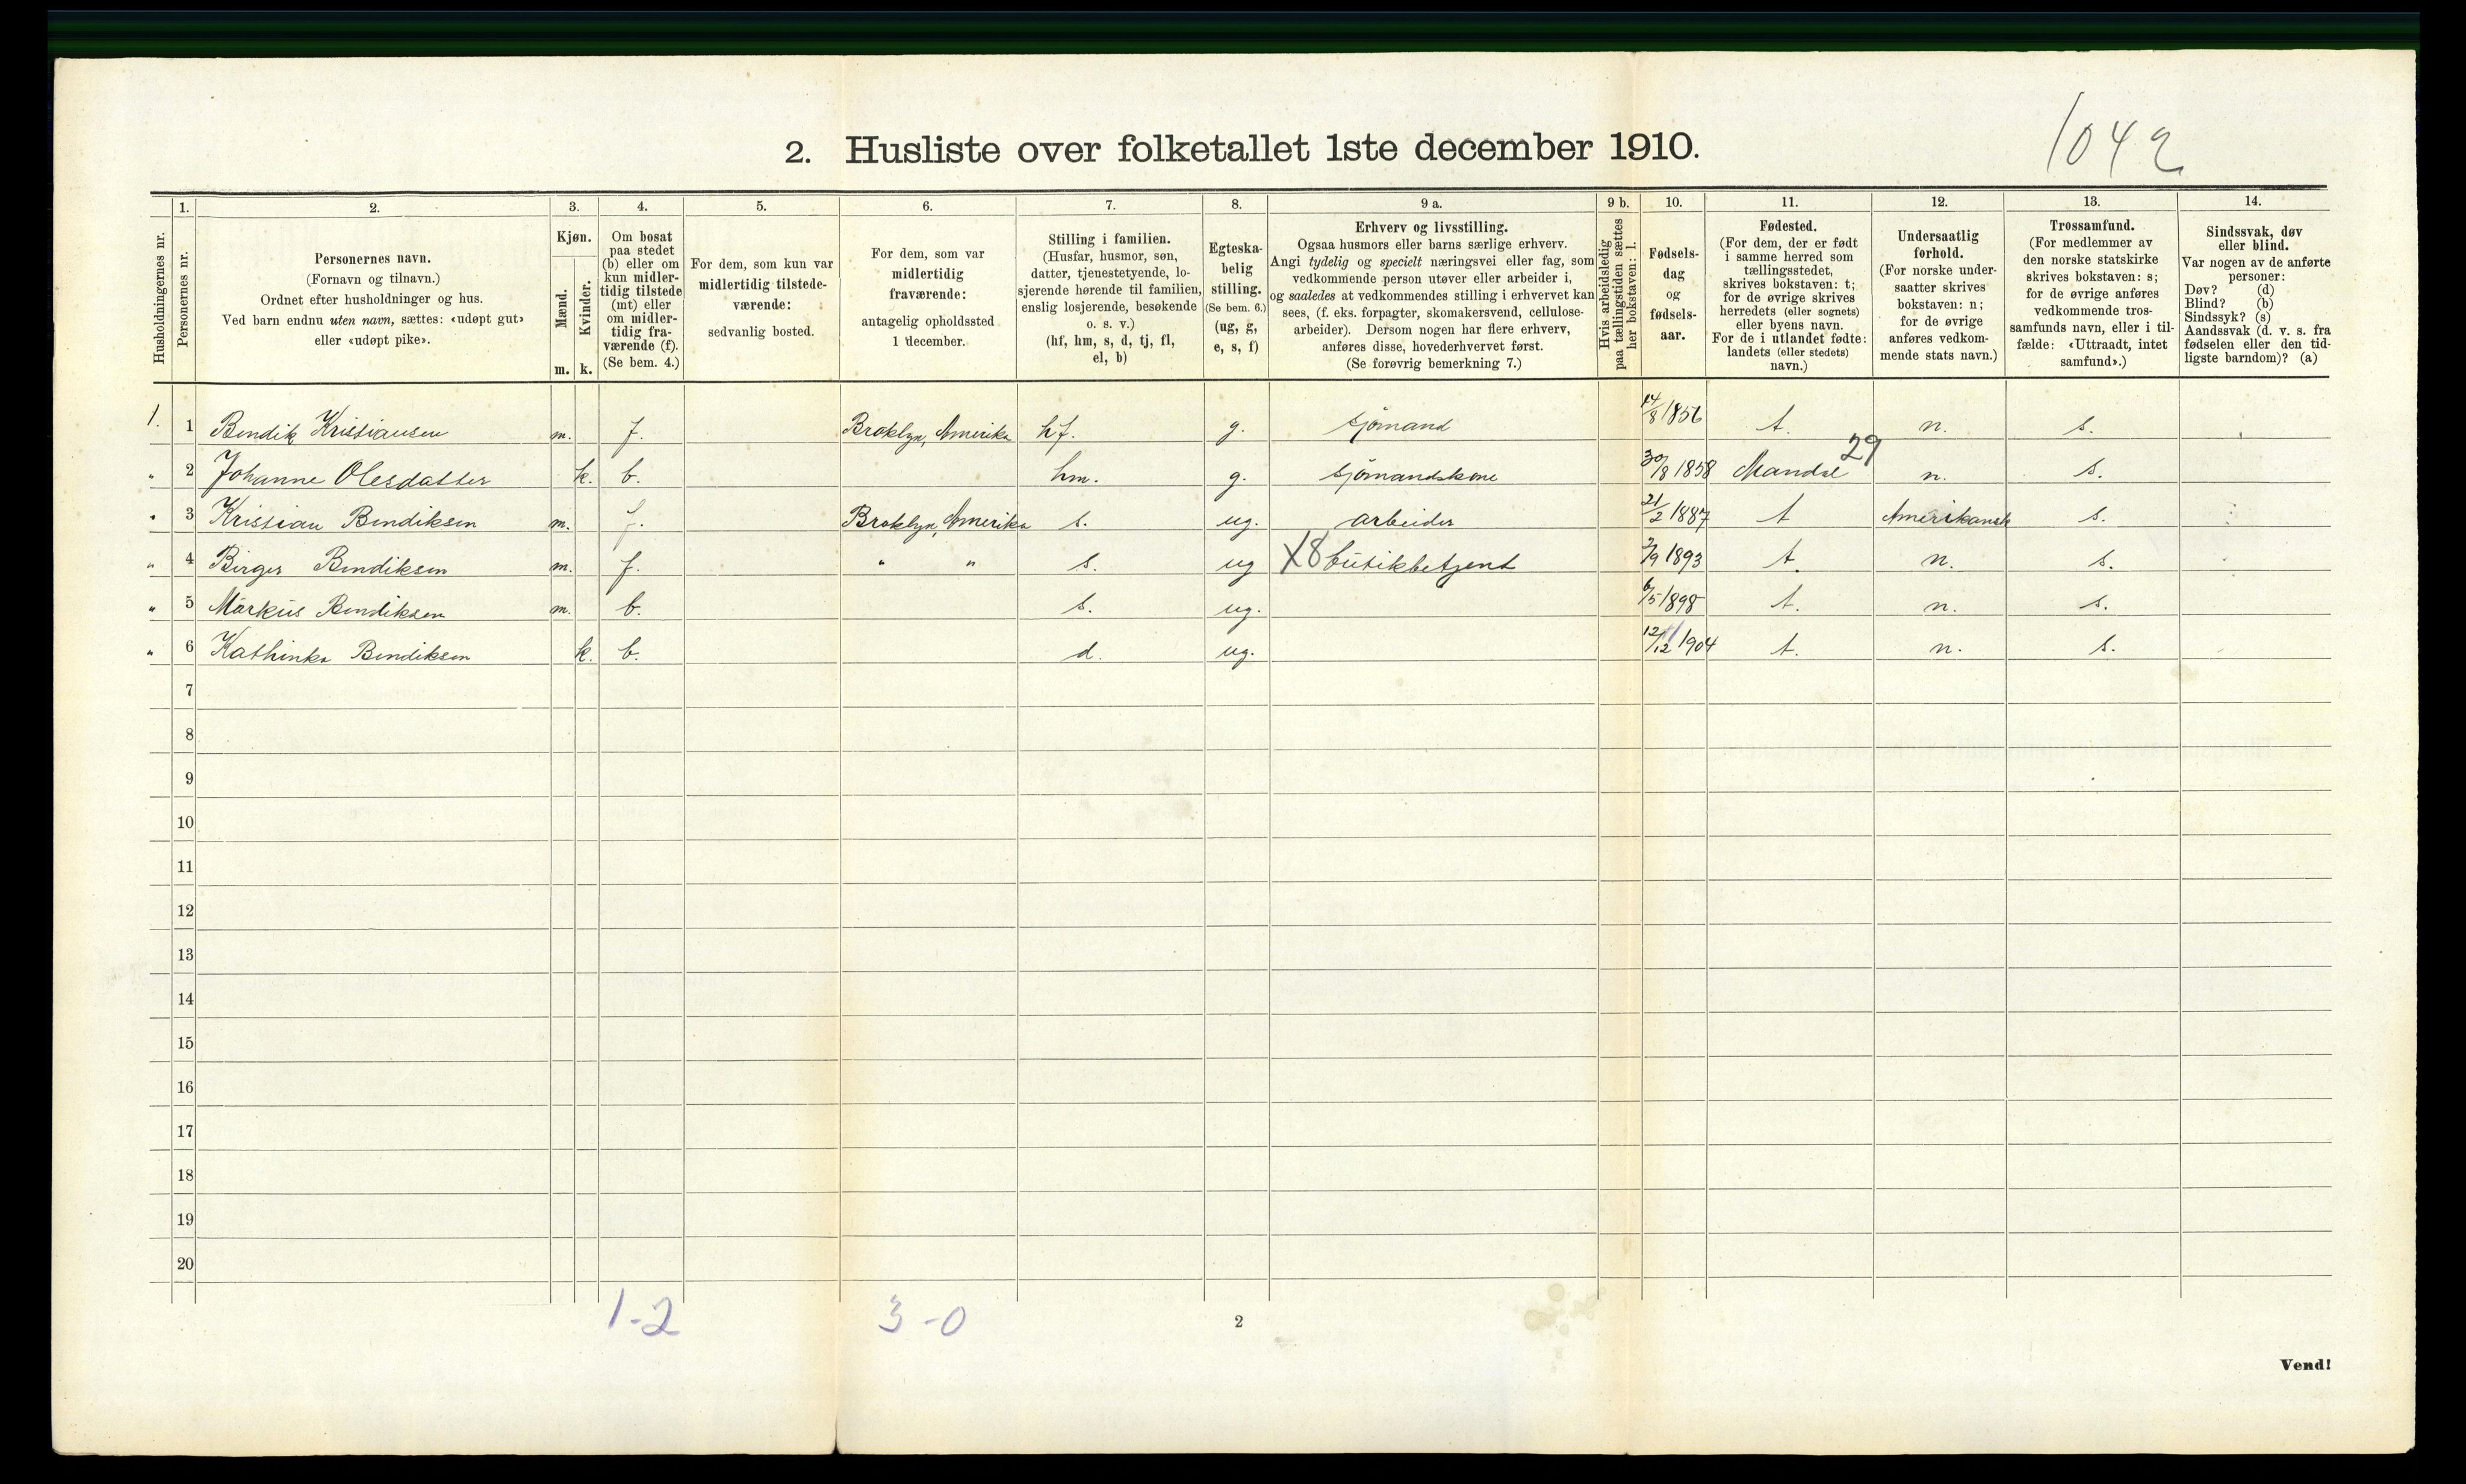 1042
2. Husliste over folketallet 1ste december 1910.
Husholdningernes nr.
1.
Personernes nr.
2.
Personernes navn.
(Fornavn og tilnavn.)
Ordnet efter husholdninger og hus.
Ved barn endnu uten navn, sættes: «udøpt gut»
eller «udøpt pike».
3.
Kjøn.
Mænd.
Kvinder.
m. k.
4.
Om bosat
paa stedet
(b) eller om
kun midler-
tidig tilstede
(mt) eller
om midler-
tidig fra-
værende (f).
(Se bem. 4.)
5.
For dem, som kun var
midlertidig tilstede-
værende:
sedvanlig bosted.
6.
For dem, som var
midlertidig
fraværende:
antagelig opholdssted
1 december.
7.
Stilling i familien.
(Husfar, husmor, søn,
datter, tjenestetyende, lo-
sjerende hørende til familien,
enslig losjerende, besøkende
o. s. v.)
(hf, hm, s, d, tj, fl,
el, b)
8.
Egteska-
belig
stilling.
(Se bem. 6.)
(ug, g,
e, s, f)
9 a.
Erhverv og livsstilling.
Ogsaa husmors eller barns særlige erhverv.
Angi tydelig og specielt næringsvei eller fag, som
vedkommende person utøver eller arbeider i,
og saaledes at vedkommendes stilling i erhvervet kan
sees, (f. eks. forpagter, skomakersvend, cellulose-
arbeider). Dersom nogen har flere erhverv,
anføres disse, hovederhvervet først.
(Se forøvrig bemerkning 7.)
9 b.
Hvis arbeidsledig
paa tællingstiden sættes
her bokstaven: l.
10.
Fødsels-
dag
og
fødsels-
aar.
11.
Fødested.
(For dem, der er født
i samme herred som
tællingsstedet,
skrives bokstaven: t;
for de øvrige skrives
herredets (eller sognets)
eller byens navn.
For de i utlandet fødte:
landets (eller stedets)
navn.)
12.
Undersaatlig
forhold.
(For norske under-
saatter skrives
bokstaven: n;
for de øvrige
anføres vedkom-
mende stats navn.)
13.
Trossamfund.
(For medlemmer av
den norske statskirke
skrives bokstaven: s;
for de øvrige anføres
vedkommende tros-
samfunds navn, eller i til-
fælde: «Uttraadt, intet
samfund».)
14.
Sindssvak, døv
eller blind.
Var nogen av de anførte
personer:
Døv? (d)
Blind? (b)
Sindssyk? (s)
Aandssvak (d. v. s. fra
fødselen eller den tid-
ligste barndom)? (a)
1. 1 Bendik Kristiansen m. f. Broklyn, Amerika hf. g. sjömand 14/8 1856 t. n. s.
" 2 Johanne Olesdatter k. b. hm. g. sjömandskone 30/8 1858 Mandal 29 n. s.
" 3 Kristian Bendiksen m. f. Broklyn, Amerika s. ug. arbeider 21/2 1887 t Amerikansk s.
" 4 Birger Bendiksen m. f. " " s. ug X8 butikbetjent 2/9 1893 t. n. s.
" 5 Markus Bendiksen m. b. s. ug. 6/5 1898 t. n. s.
" 6 Kathinka Bendiksen k. b. d. ug. 12/12 1904 t. n. s.
7
8
9
10
11
12
13
14
15
16
17
18
19
20
1-2 3-0
2
Vend!